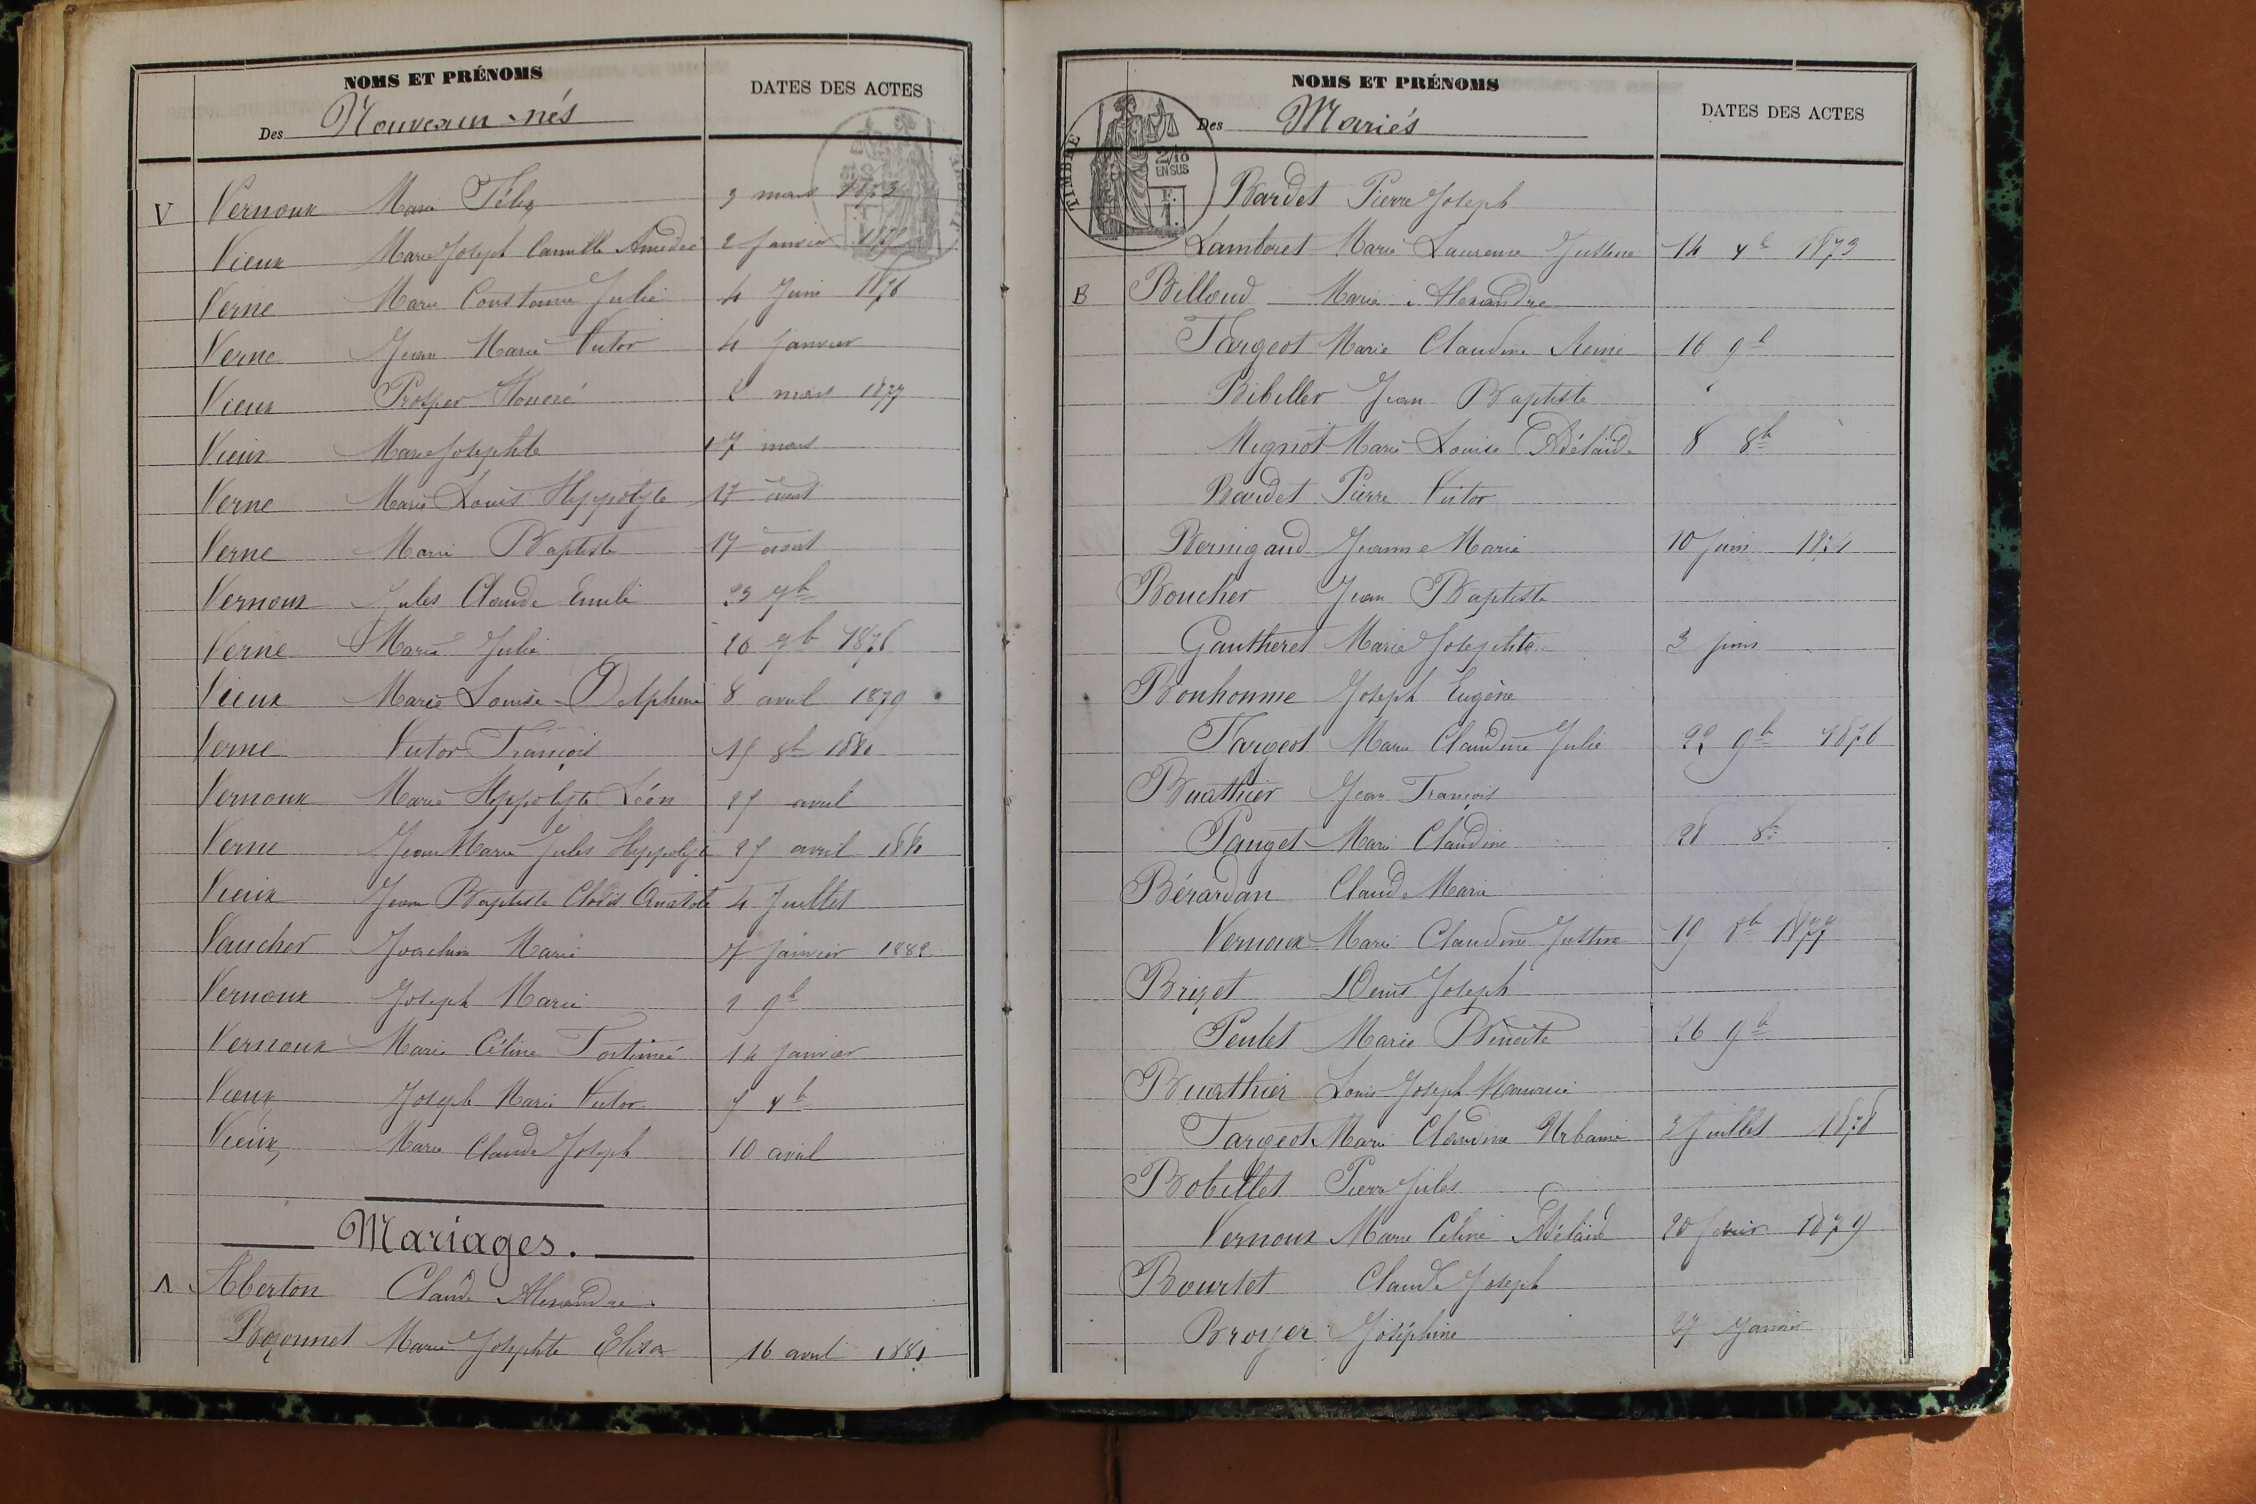 NOMS ET PRÉNOMS
DATES DES ACTES
Des Nouveau-nés
V Vernoux Marie Félix 3 mars 1873
Vieux Marie Joseph Camille Amédée 2 Janvier
Verne Marie Constance Julie 4 Juin 1876
Verne Jean Marie Victor 4 Janvier
Vieux Prosper Honoré 2 mars 1877
Vieux Marie Josephte 17 mars
Verne Marie Louis Hyppolyte 17 août
Verne Marie Baptiste 17 août
Vernoux Jules Claude Emile 23 7b
Verne Marie Julie 20 7b 1876
Vieux Marie Louise Delphine 8 avril 1879
Verne Victor François 15 8b 1880
Vernoux Marie Hyppolyte Léon 25 avril
Verne Jean Marie Jules Hyppolyte 25 avril 1880
Vieux Jean Baptiste Clovis Anatole 4 Juillet
Vaucher Joachim Marie 7 janvier 1882
Vernoux Joseph Marie 2 9b
Vernoux Marie Céline Fortunée 14 janvier
Vieux Joseph Marie Victor
Vieux Marie Claude Joseph 10 avril
Mariages.
A Aberton Claude Alexandre
Bozonnet Marie Josephte Elisa 16 avril 1881
NOMS ET PRÉNOMS
DATES DES ACTES
Des Mariés
TIMBRE
2/10
EN SUS
Bardet Pierre Joseph
Lamboret Marie Laurence Justine 14 1873
B Billoud Marie Alexandre
Fargeot Marie Claudine Reine 16 9b
Bibillet Jean Baptiste
Mignot Marie Louise Adélaïde 8 8b
Bardet Pierre Victor
Bernigaud Jeanne Marie 10 Juin
Boucher Jean Baptiste
Gautheret Marie Josephte 3 juin
Bonhomme Joseph Eugène
Fargeot Marie Claudine Julie 22 9b 1876
Buathier Jean François
Pauget Marie Claudine 28 8b
Bérardan Claude Marie
Vernoux Marie Claudine Justine 19 8b 1877
Brizet Denis Joseph
Peulet Marie Benoite 26 9b
Buathier Louis Joseph Honoré
Fargeot Marie Claudine Urbanie 3 Juillet 1878
Bobillet Pierre Jules
Vernoux Marie Céline Adélaïde 20 fevrier 1879
Bourlet Claude Joseph
Broyer Joséphine 27 Janvier